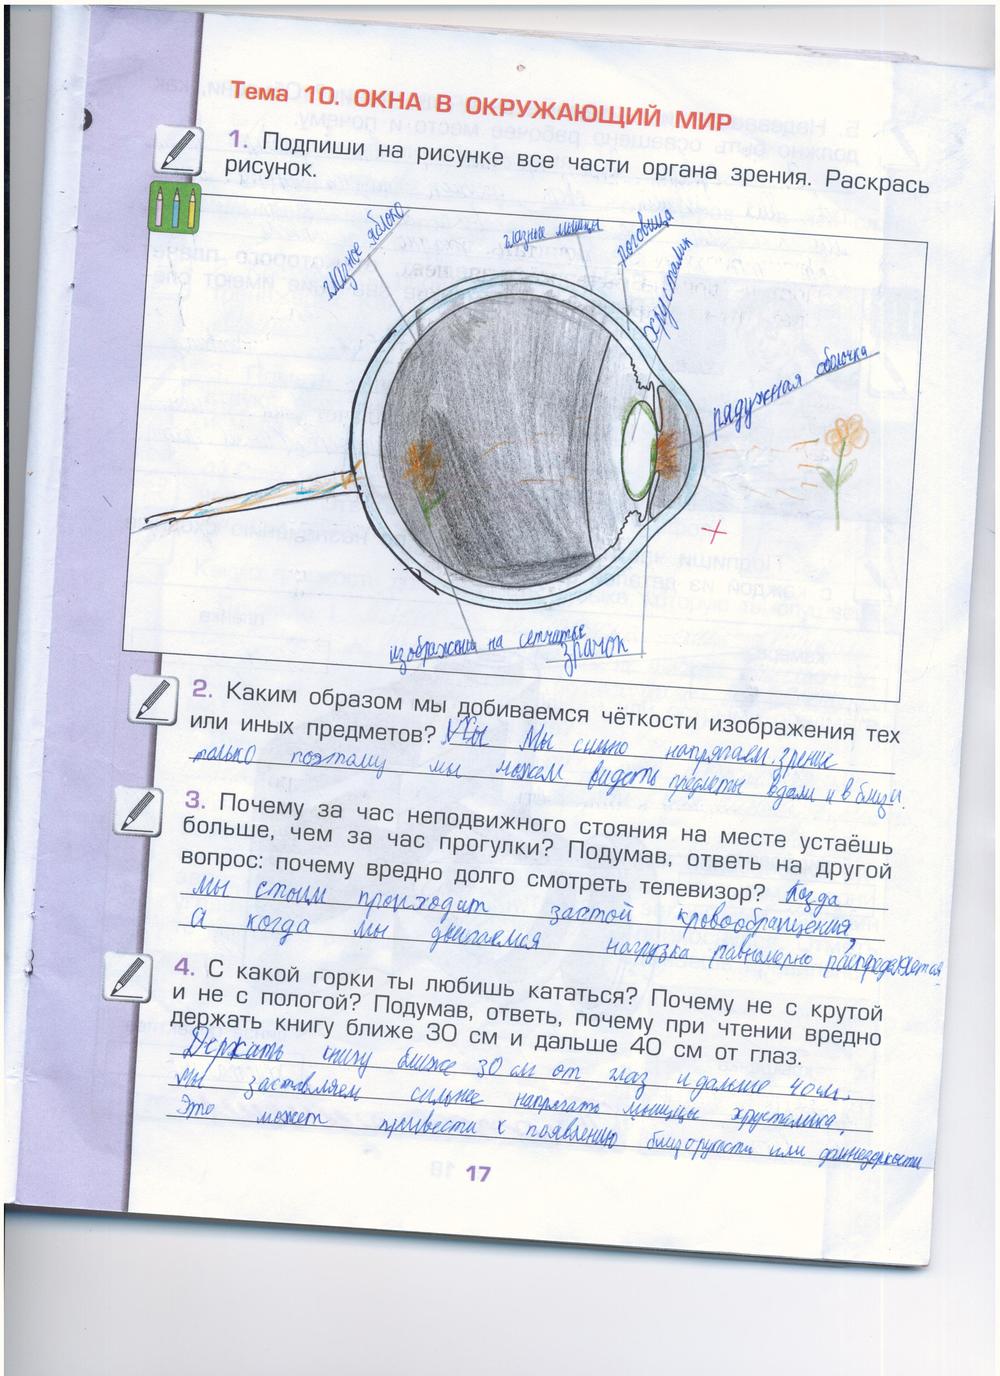 Тема 10. ОКНА В ОКРУЖАЮЩИЙ МИР
1. Подпиши на рисунке все части органа зрения. Раскрась
рисунок.
глазное яблоко
глазные мышцы
роговица
хрусталик
радужная оболочка
изображения на сетчатке
зрачок
2. Каким образом мы добиваемся чёткости изображения тех
или иных предметов? Мы сильно напрягаем зрение
только поэтому мы можем видеть предметы вдали и в близи.
3. Почему за час неподвижного стояния на месте устаёшь
больше, чем за час прогулки? Подумав, ответь на другой
вопрос: почему вредно долго смотреть телевизор? Когда
мы стоим происходит застой кровообращения,
а когда мы двигаемся нагрузка равномерно распределяется.
4. С какой горки ты любишь кататься? Почему не с крутой
и не с пологой? Подумав, ответь, почему при чтении вредно
держать книгу ближе 30 см и дальше 40 см от глаз.
Держать книгу ближе 30 см от глаз и дальше 40 см.
мы заставляем сильнее напрягать мышцы хрусталика.
Это может привести к появлению близорукости или дальнозоркости
17